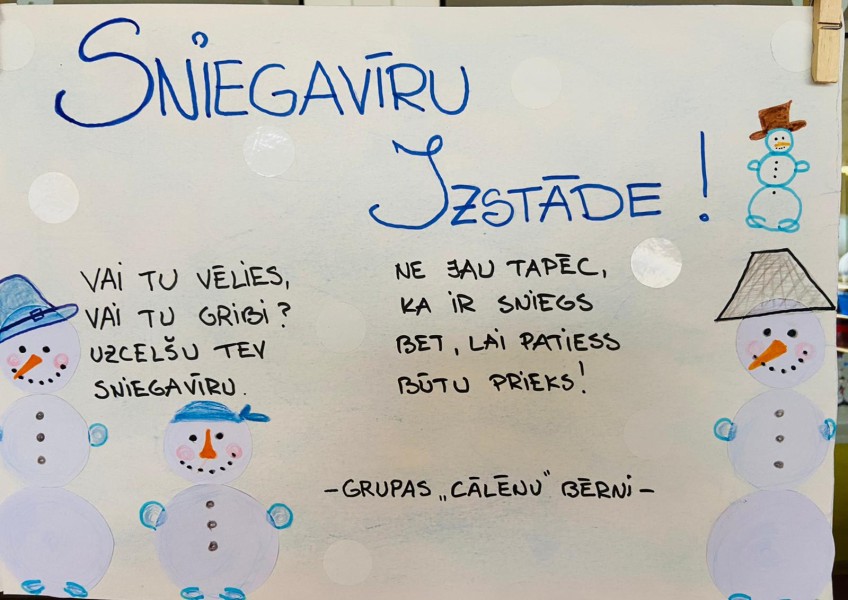 SNIEGAVĪRU
IZSTĀDE!
VAI TU VĒLIES,
VAI TU GRIBI?
UZCELŠU TEV
SNIEGAVĪRU.
NE JAU TAPĒC,
KA IR SNIEGS
BET, LAI PATIESS
BŪTU PRIEKS!
-GRUPAS „CĀLĒNU" BĒRNI-